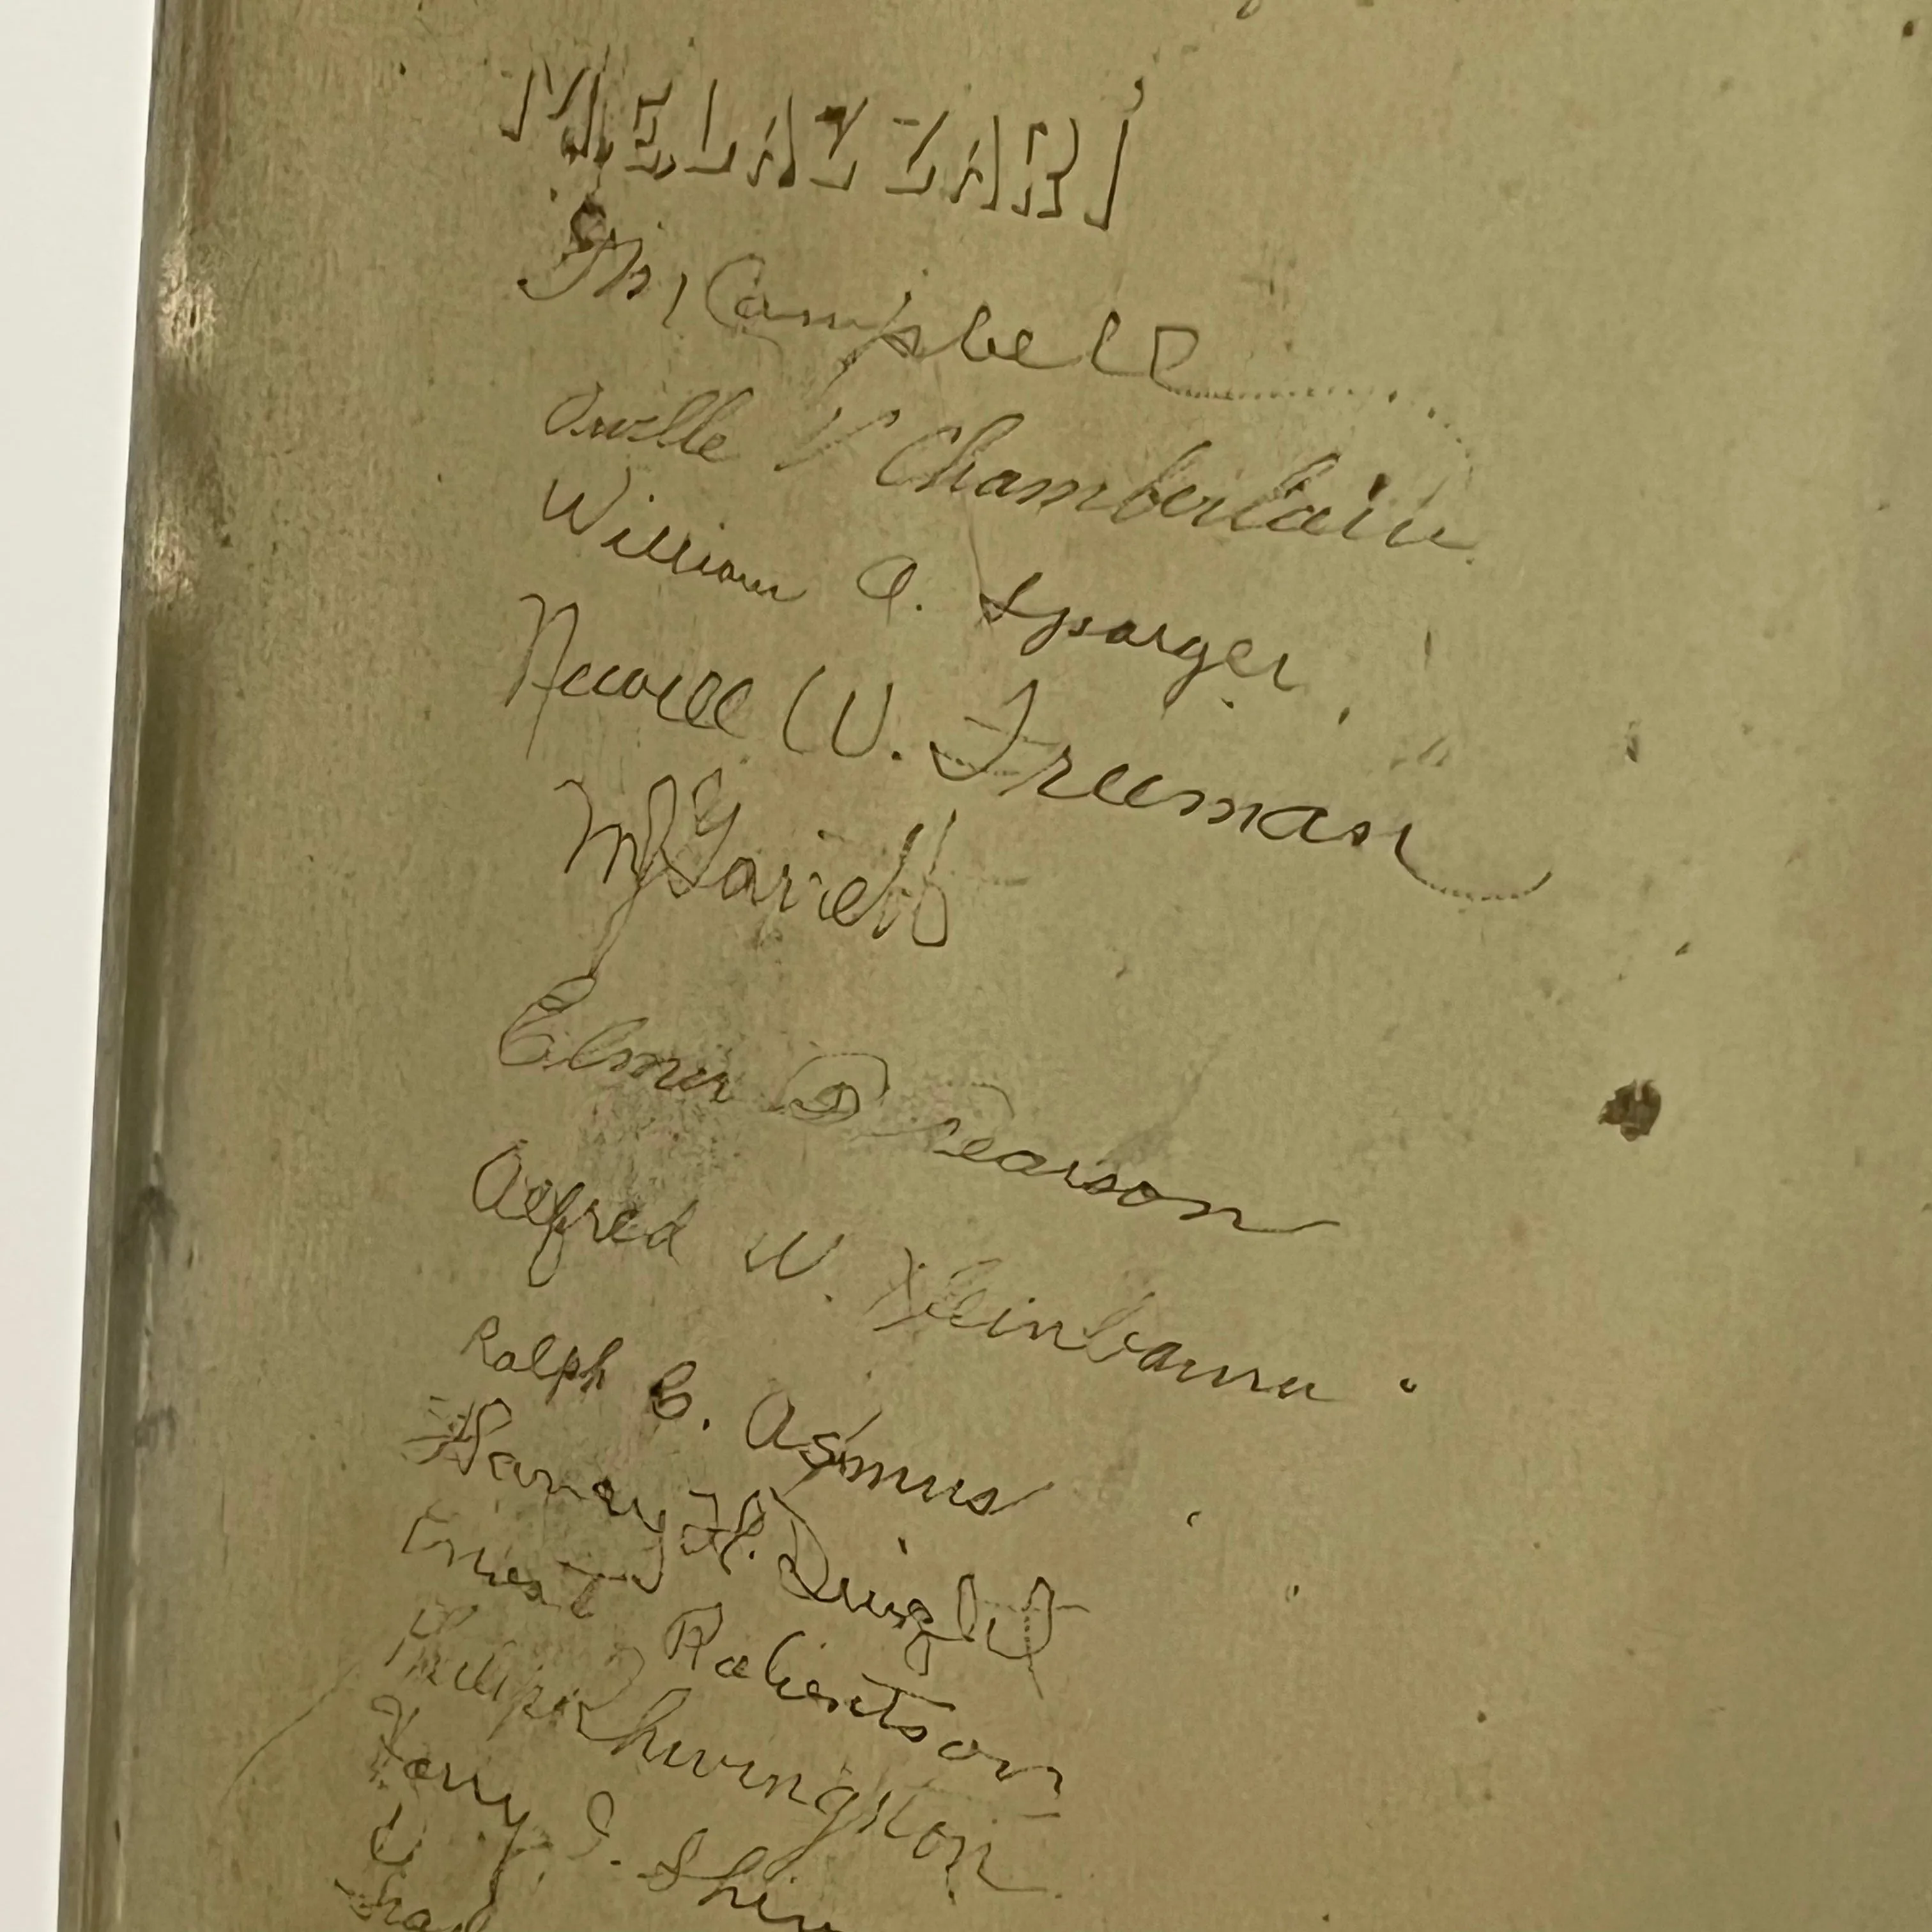 MELAZZARI
Campbell
Orville V Chamberlain
William A. Sparger
Newell W. Freeman
Garrett
Elmer Pearson
Alfred W. Kleinbaum
Ralph B. Asmus
Harvey H. Dwight
Ernest Robertson
Philip
S. Shin